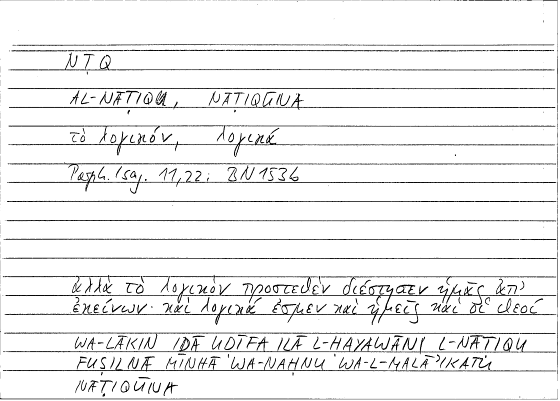 NṬQ
AL-NĀṬIQU, NĀṬIQŪNA
τὸ λογικόν, λογικά
Porph. Isag. 11,22; BN 153b
ἀλλὰ τὸ λογικὸν προστεθὲν διέστησεν ἡμᾶς ἀπ'
ἐκείνων· καὶ λογικά ἐσμεν καὶ ἡμεῖς καὶ οἱ θεοί
WA-LĀKIN IḎĀ UḌĪFA ILĀ L-ḤAYAWĀNI L-NĀṬIQU
FUṢILNĀ MINHĀ WA-NAḤNU WA-L-MALĀ'IKATU
NĀṬIQŪNA